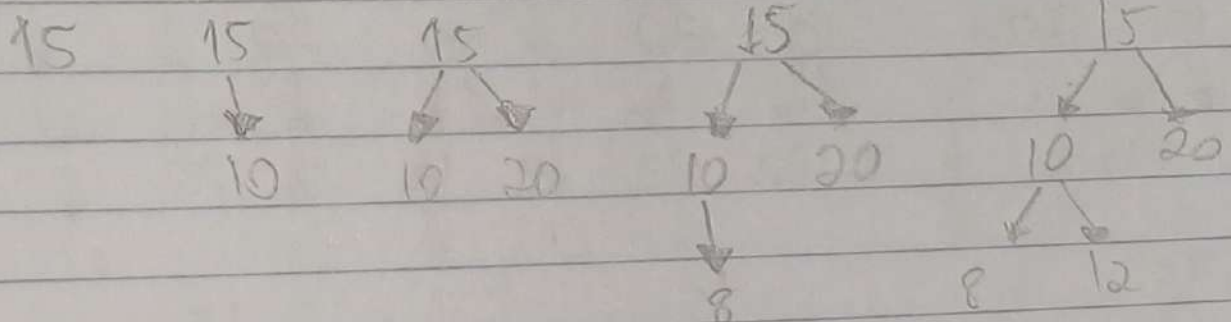 15 15 15 15 15
10 10 20 10 20 10 20
8 8 12